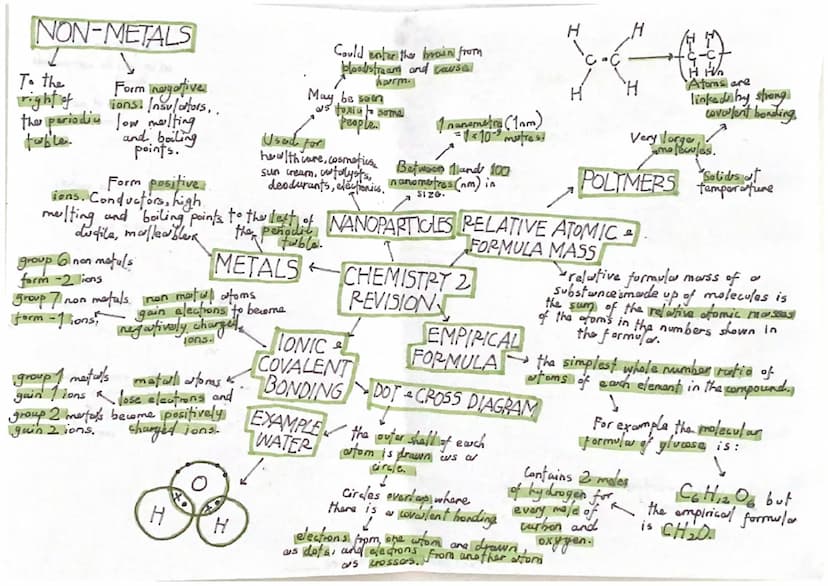 NON-METALS
To the
right of
the periodic
table.
Form negative
ions. Insulators,
low melting
and boiling
points.
Could enter the brain from
bloodstream and cause
harm.
May be seen
as toxic to some
people.
Used for
healthcare, cosmetics,
sun cream, catalysts,
deodurants, electronics.
1 nanometre (1nm)
= 1 x 10⁻⁹ metres.
Between 1 and 100
nanometres (nm) in
size.
NANOPARTICLES
H H
C = C
H H
H H
C-C
H H n
Atoms are
linked by strong
covalent bonding.
Very large
molecules.
Solids at
temperature
POLYMERS
RELATIVE ATOMIC &
FORMULA MASS
relative formula mass of a
substance made up of molecules is
the sum of the relative atomic masses
of the atoms in the numbers shown in
the formula.
Form positive
ions. Conductors, high
melting and boiling points
ductile, malleable
to the left of
the periodic
table.
METALS
CHEMISTRY 2
REVISION
group 6 non metals
form -2 ions
group 7 non metals
form -1 ions,
non metal atoms
gain electrons to become
negatively charged
ions.
IONIC &
COVALENT
BONDING
group 1 metals
gain 1 ions
group 2 metals
gain 2 ions.
metal atoms
lose electrons and
become positively
charged ions.
EMPIRICAL
FORMULA
the simplest whole number ratio of
atoms of each element in the compound.
For example the molecular
formular of glucose is:
C₆H₁₂O₆ but
the empirical formular
is CH₂O.
Contains 2 moles
of hydrogen for
every mole of
carbon and
oxygen.
DOT & CROSS DIAGRAM
the outer shell of each
atom is drawn as a
circle.
Circles overlap where
there is a covalent bonding
electrons from one atom are drawn
as dots, and electrons from another atom
as crosses.
EXAMPLE
WATER
O
H H